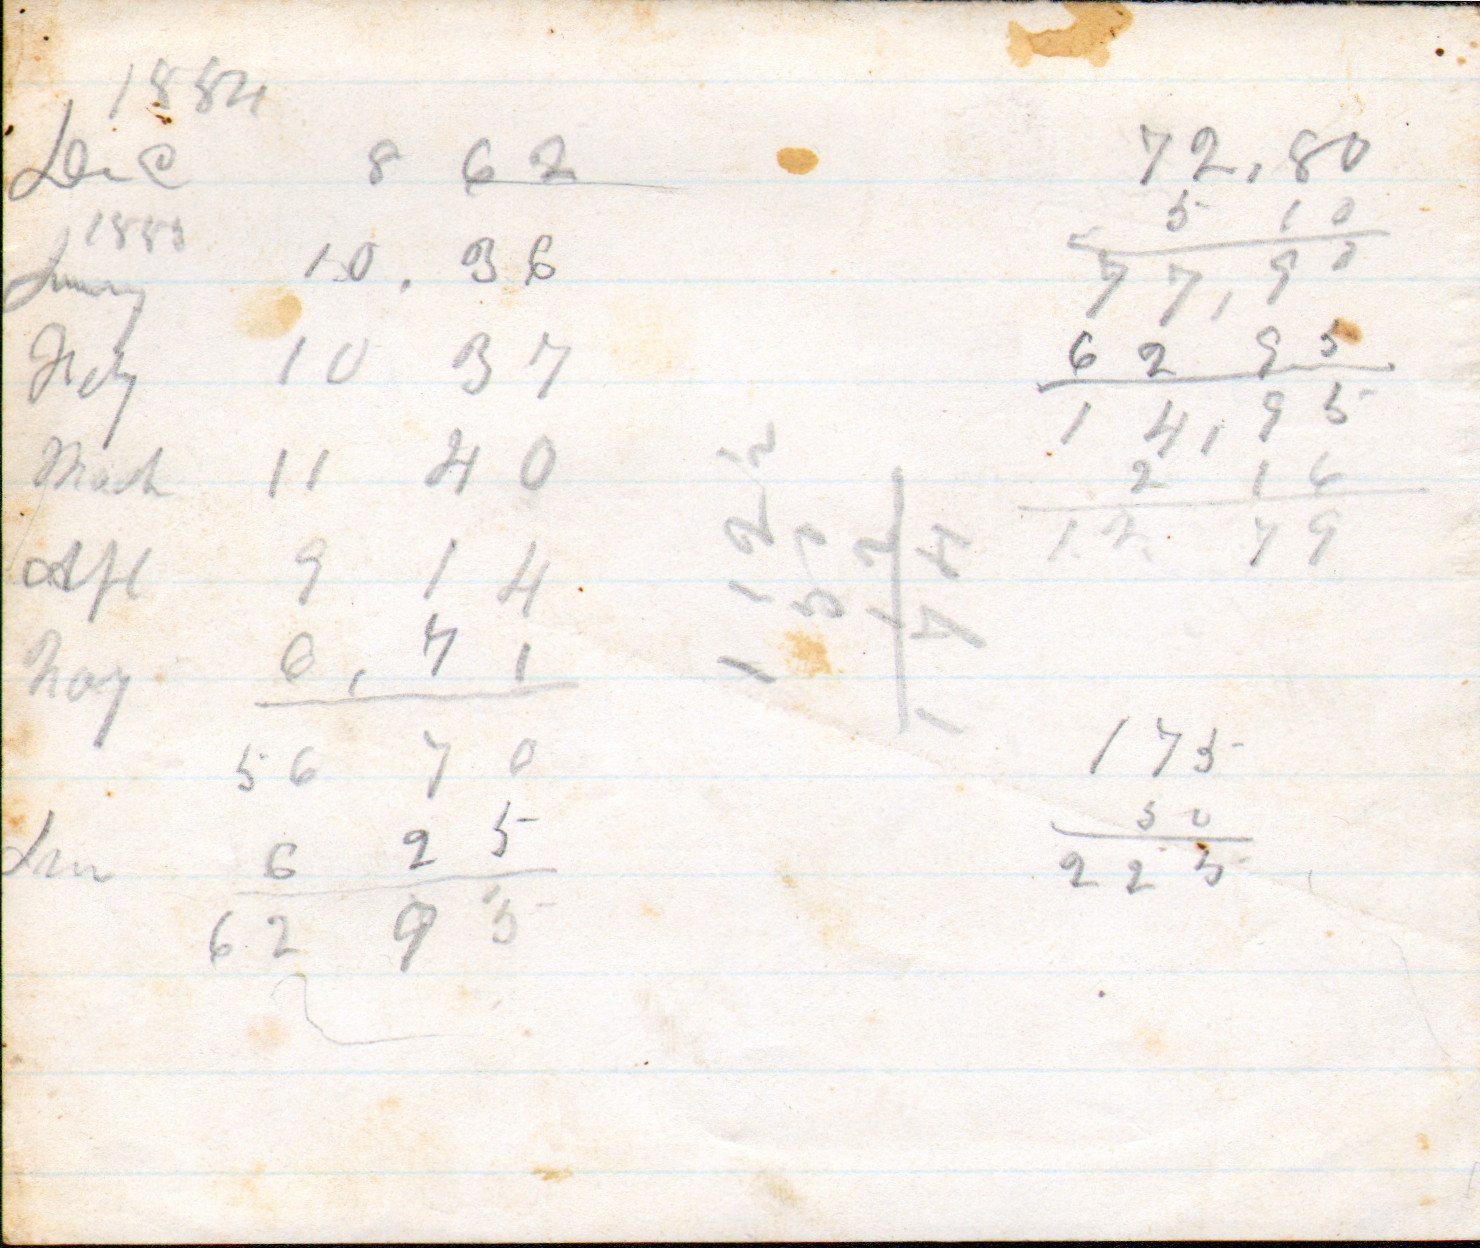 1884
Dec 8 62
1885
January 10.36
Feby 10 37
March 11 40
Apl 9 14
May 6,71
56 70
Jun 6 25
62 95
112½
12
174
72,80
5 10
77,90
62 95
14,95
2 16
12 79
175
50
225